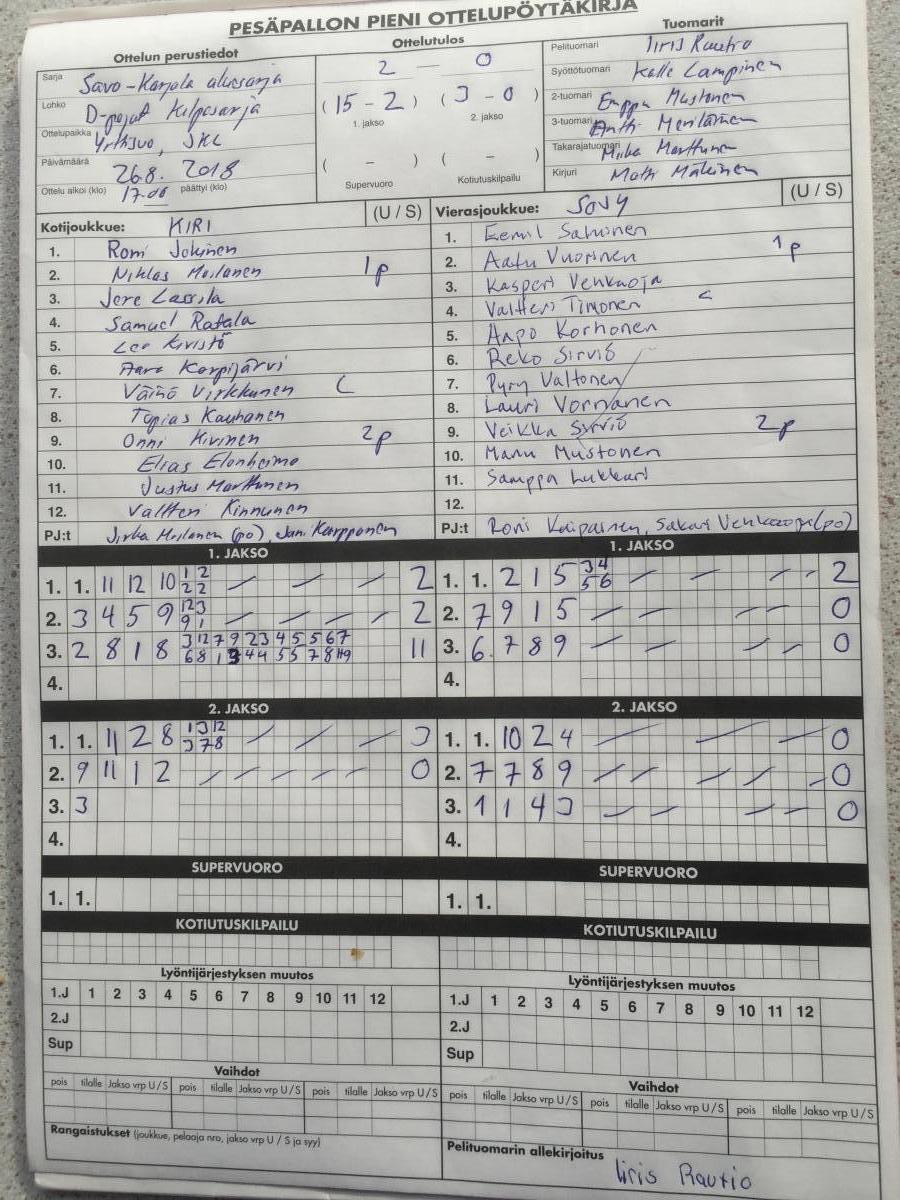 PESÄPALLON PIENI OTTELUPÖYTÄKIRJA
Ottelun perustiedot
Sarja Savo-Karjala aluesarja
Lohko D-pojat kilpasarja
Ottelupaikka SKL
Päivämäärä 26.8. 2018
Ottelu alkoi (klo) 17.00 päättyi (klo)
Ottelutulos
2 — 0
(15 - 2) (3 - 0)
1. jakso 2. jakso
( - ) ( - )
Supervuoro Kotiutuskilpailu
Tuomarit
Pelituomari Iiris Rautio
Syöttötuomari Kalle Lampinen
2-tuomari Eemppu Mustonen
3-tuomari Antti Meriläinen
Takarajatuomari Miika Marttunen
Kirjuri Matti Mäkinen
Kotijoukkue: KIRI (U / S)
1. Romi Jokinen
2. Niklas Moilanen 1p
3. Jere Lassila
4. Samuel Ratala
5. Leo Kivistö
6. Aaro Karpijärvi
7. Väinö Virkkunen C
8. Topias Kauhanen
9. Onni Hirvinen 2p
10. Elias Elonheimo
11. Justus Marttunen
12. Valtteri Kinnunen
PJ:t Jirka Moilanen (po), Jani Karpponen
Vierasjoukkue: SOVY (U / S)
1. Eemil Sahinen
2. Aatu Vuorinen 1p
3. Kasperi Venkaoja
4. Valtteri Timonen C
5. Aapo Korhonen
6. Reko Sirviö
7. Pyry Valtonen
8. Lauri Vornanen
9. Veikka Sirviö 2p
10. Manu Mustonen
11. Samppa Lukkari
12.
PJ:t Roni Kaipainen, Sakari Venkaoja (po)
1. JAKSO
1. 1. 11 12 10 1 2 2
2 2
2. 3 4 5 9 1 2 3 2
9 1
3. 2 8 1 8 3 12 7 9 2 3 4 5 5 6 7 11
6 8 1 3 4 4 5 5 7 8 11 9
4.
1. JAKSO
1. 1. 2 1 5 3 4 2
5 6
2. 7 9 1 5 0
3. 6. 7 8 9 0
4.
2. JAKSO
1. 1. 11 2 8 1 3 12 3
3 7 8
2. 9 11 1 2 0
3. 3
4.
2. JAKSO
1. 1. 10 2 4 0
2. 7 7 8 9 0
3. 1 1 4 3 0
4.
SUPERVUORO
1. 1.
SUPERVUORO
1. 1.
KOTIUTUSKILPAILU
KOTIUTUSKILPAILU
Lyöntijärjestyksen muutos
1.J 1 2 3 4 5 6 7 8 9 10 11 12
2.J
Sup
Lyöntijärjestyksen muutos
1.J 1 2 3 4 5 6 7 8 9 10 11 12
2.J
Sup
Vaihdot
pois tilalle Jakso vrp U / S pois tilalle Jakso vrp U / S pois tilalle Jakso vrp U / S
Vaihdot
pois tilalle Jakso vrp U / S pois tilalle Jakso vrp U / S pois tilalle Jakso vrp U / S
Rangaistukset (joukkue, pelaaja nro, jakso vrp U / S ja syy)
Pelituomarin allekirjoitus
Iiris Rautio